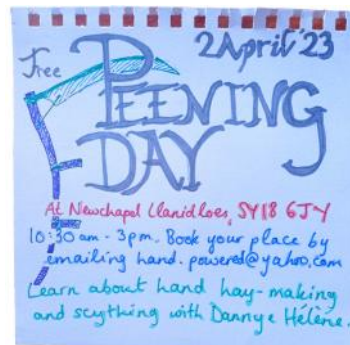 2 April '23
Free
PEENING
DAY
At Newchapel Llanidloes, SY18 6JY
10:30 am - 3pm. Book your place by
emailing hand.powered@yahoo.com
Learn about hand hay-making
and scything with Danny & Hélène.